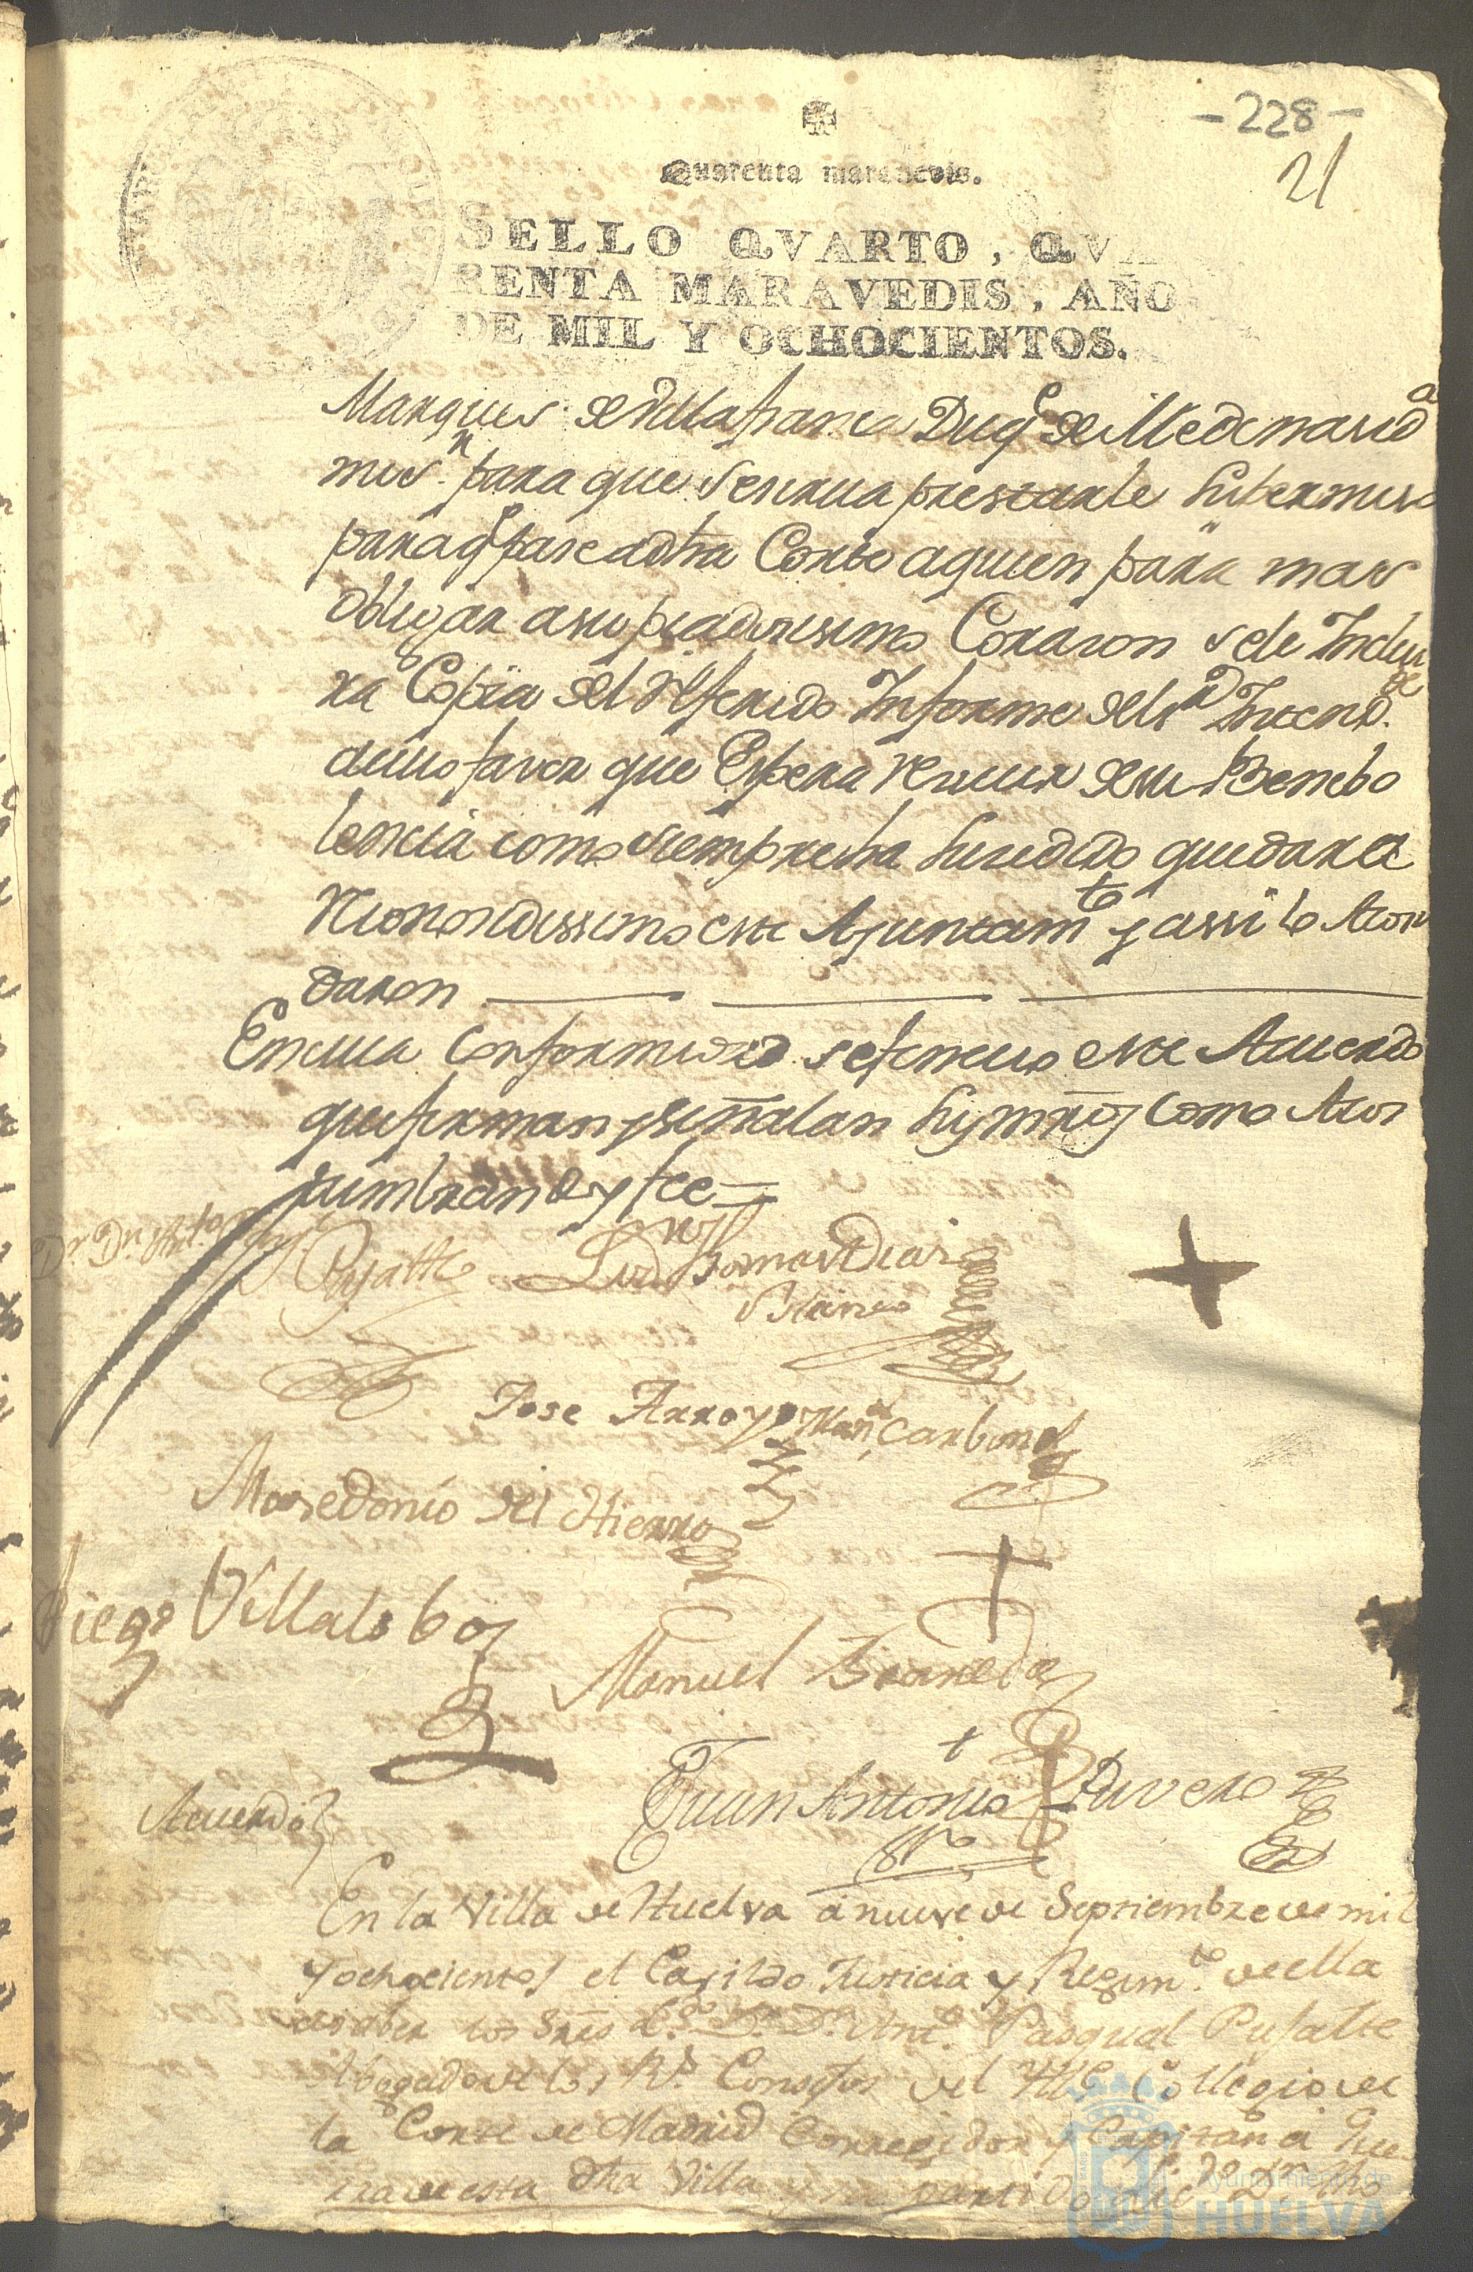 - 228 -
21
Quarenta maravedis.
SELLO QVARTO, QVA
RENTA MARAVEDIS, AÑO
DE MIL Y OCHOCIENTOS.
Marques de Villafranca Duqe de Medinasida
para que se sirva prestarle su permiso
para q pase a dha Corte a quien para mas
obligar a su piadosisimo Corazon se le Inclui
ra Copia del referido Informe del Sr Intende
cuio favor que Espera recivir de su Benebo
lencia como siempre ha sucedido quedara
reconosidissimo este Ayuntamto y assi lo Acor
daron
En cuia conformidad se fenecio este Acuerdo
que firman y señalan sus mrds como Acos
tumbran doy fee =
Dr Dn Anto Pasql
Pufalte
Licdo Tomas Diaz
Blanco
Jose Arroyo
Manl Carbonel
Masedonio del Hierro
Diego Villalobos
Manuel
Juan Antonio Rivero
Acuerdo
En la Villa de Huelva a nueve de Septiembre de mil
y ochocientos el Cavildo Justicia y Regimto de ella
a saber los Sres Ldo Dr Dn Anto Pasqual Pufalte
Abogado de los Rs Consejos del Ille Collegio de
la Corte de Madrid Corregidor y Capitan a Gue
rra de esta dha Villa y su partido
Ayuntamiento de
HUELVA